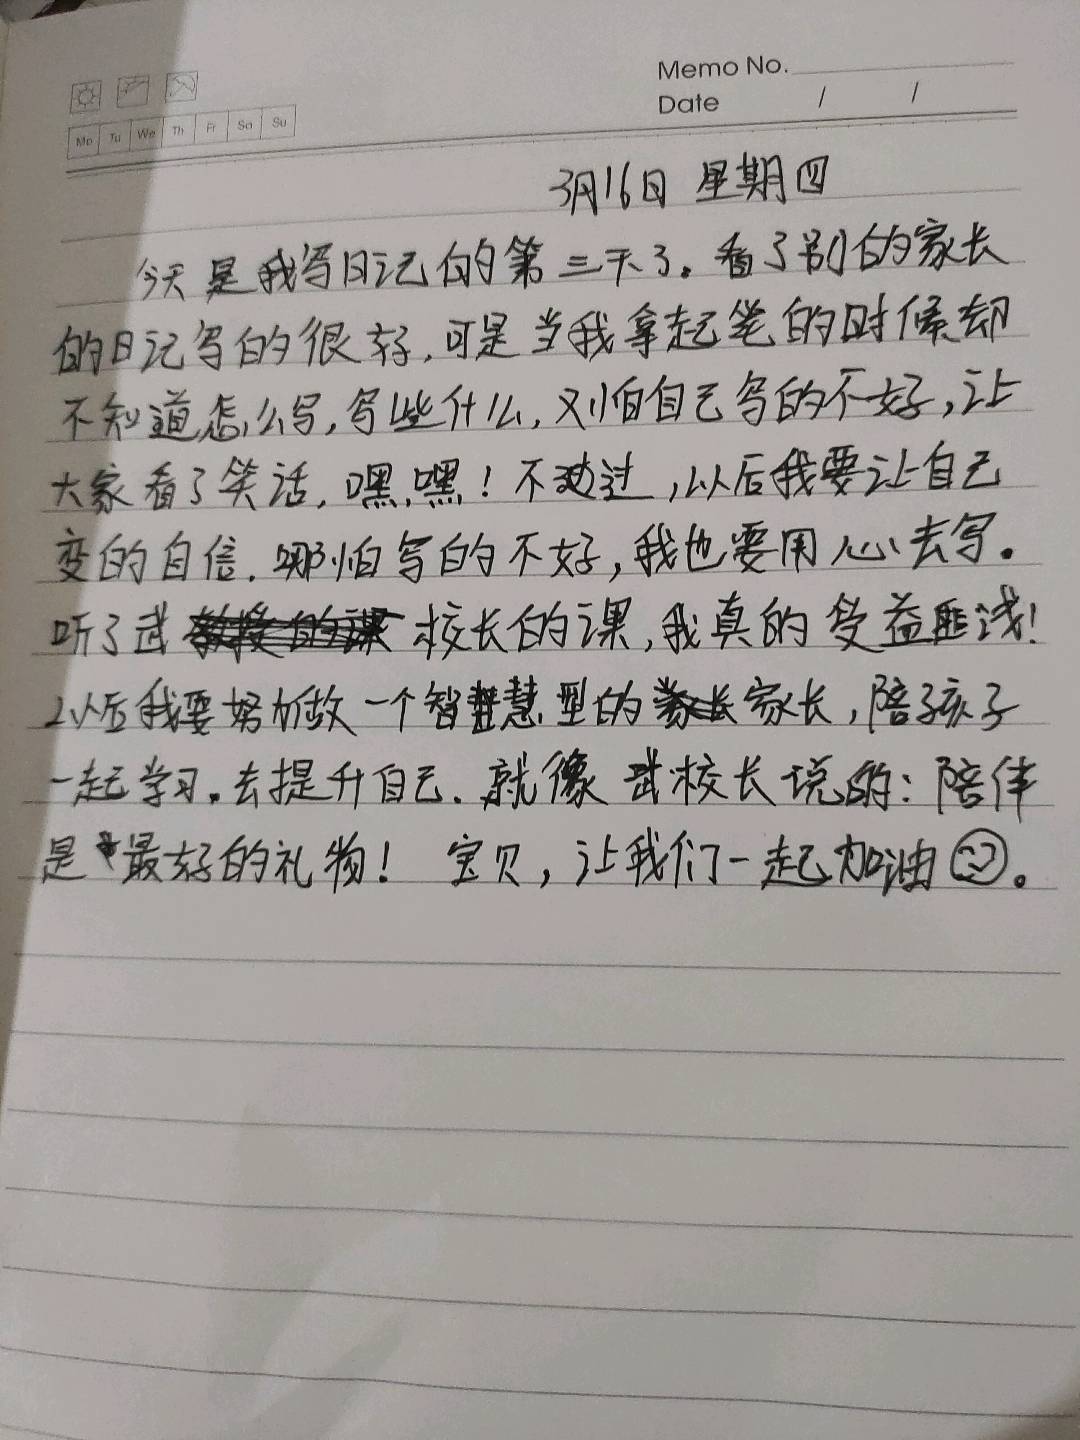 Memo No.
Date / /
Mo Tu We Th Fr Sa Su
3月16日 星期四
今天是我写日记的第三天了。看了别的家长
的日记写的很好,可是当我拿起笔的时候却
不知道怎么写,写些什么,又怕自己写的不好,让
大家看了笑话,嘿,嘿!不过,以后我要让自己
变的自信.哪怕写的不好,我也要用心去写。
听了武校长的课,我真的受益匪浅!
以后我要努力做一个智慧型的家长,陪孩子
一起学习。去提升自己.就像武校长说的:陪伴
是最好的礼物! 宝贝,让我们一起加油。